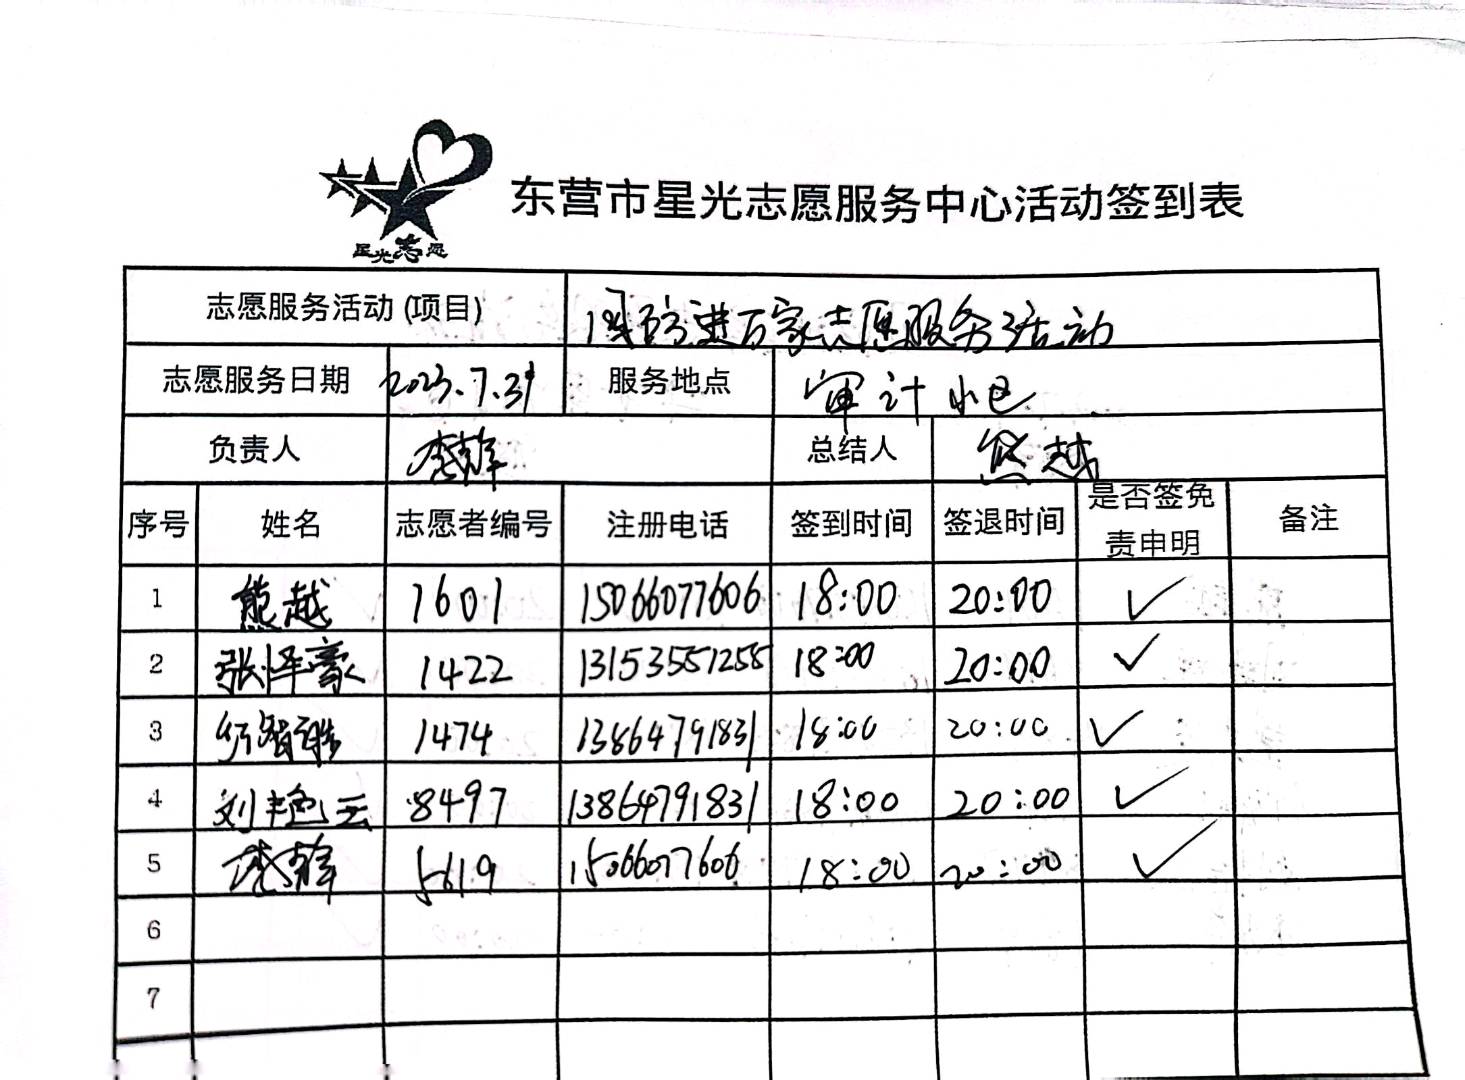 星光志愿
东营市星光志愿服务中心活动签到表
志愿服务活动 (项目) 进万家志愿服务活动
志愿服务日期 2023.7.31 服务地点 审计小区
负责人 总结人 熊越
序号 姓名 志愿者编号 注册电话 签到时间 签退时间 是否签免责申明 备注
1 熊越 1601 15066077606 18:00 20:00 ✓
2 张泽豪 1422 13153551258 18:00 20:00 ✓
3 1474 13864791831 18:00 20:00 ✓
4 刘艳云 8497 13864791831 18:00 20:00 ✓
5 5619 15066077606 18:00 20:00 ✓
6
7